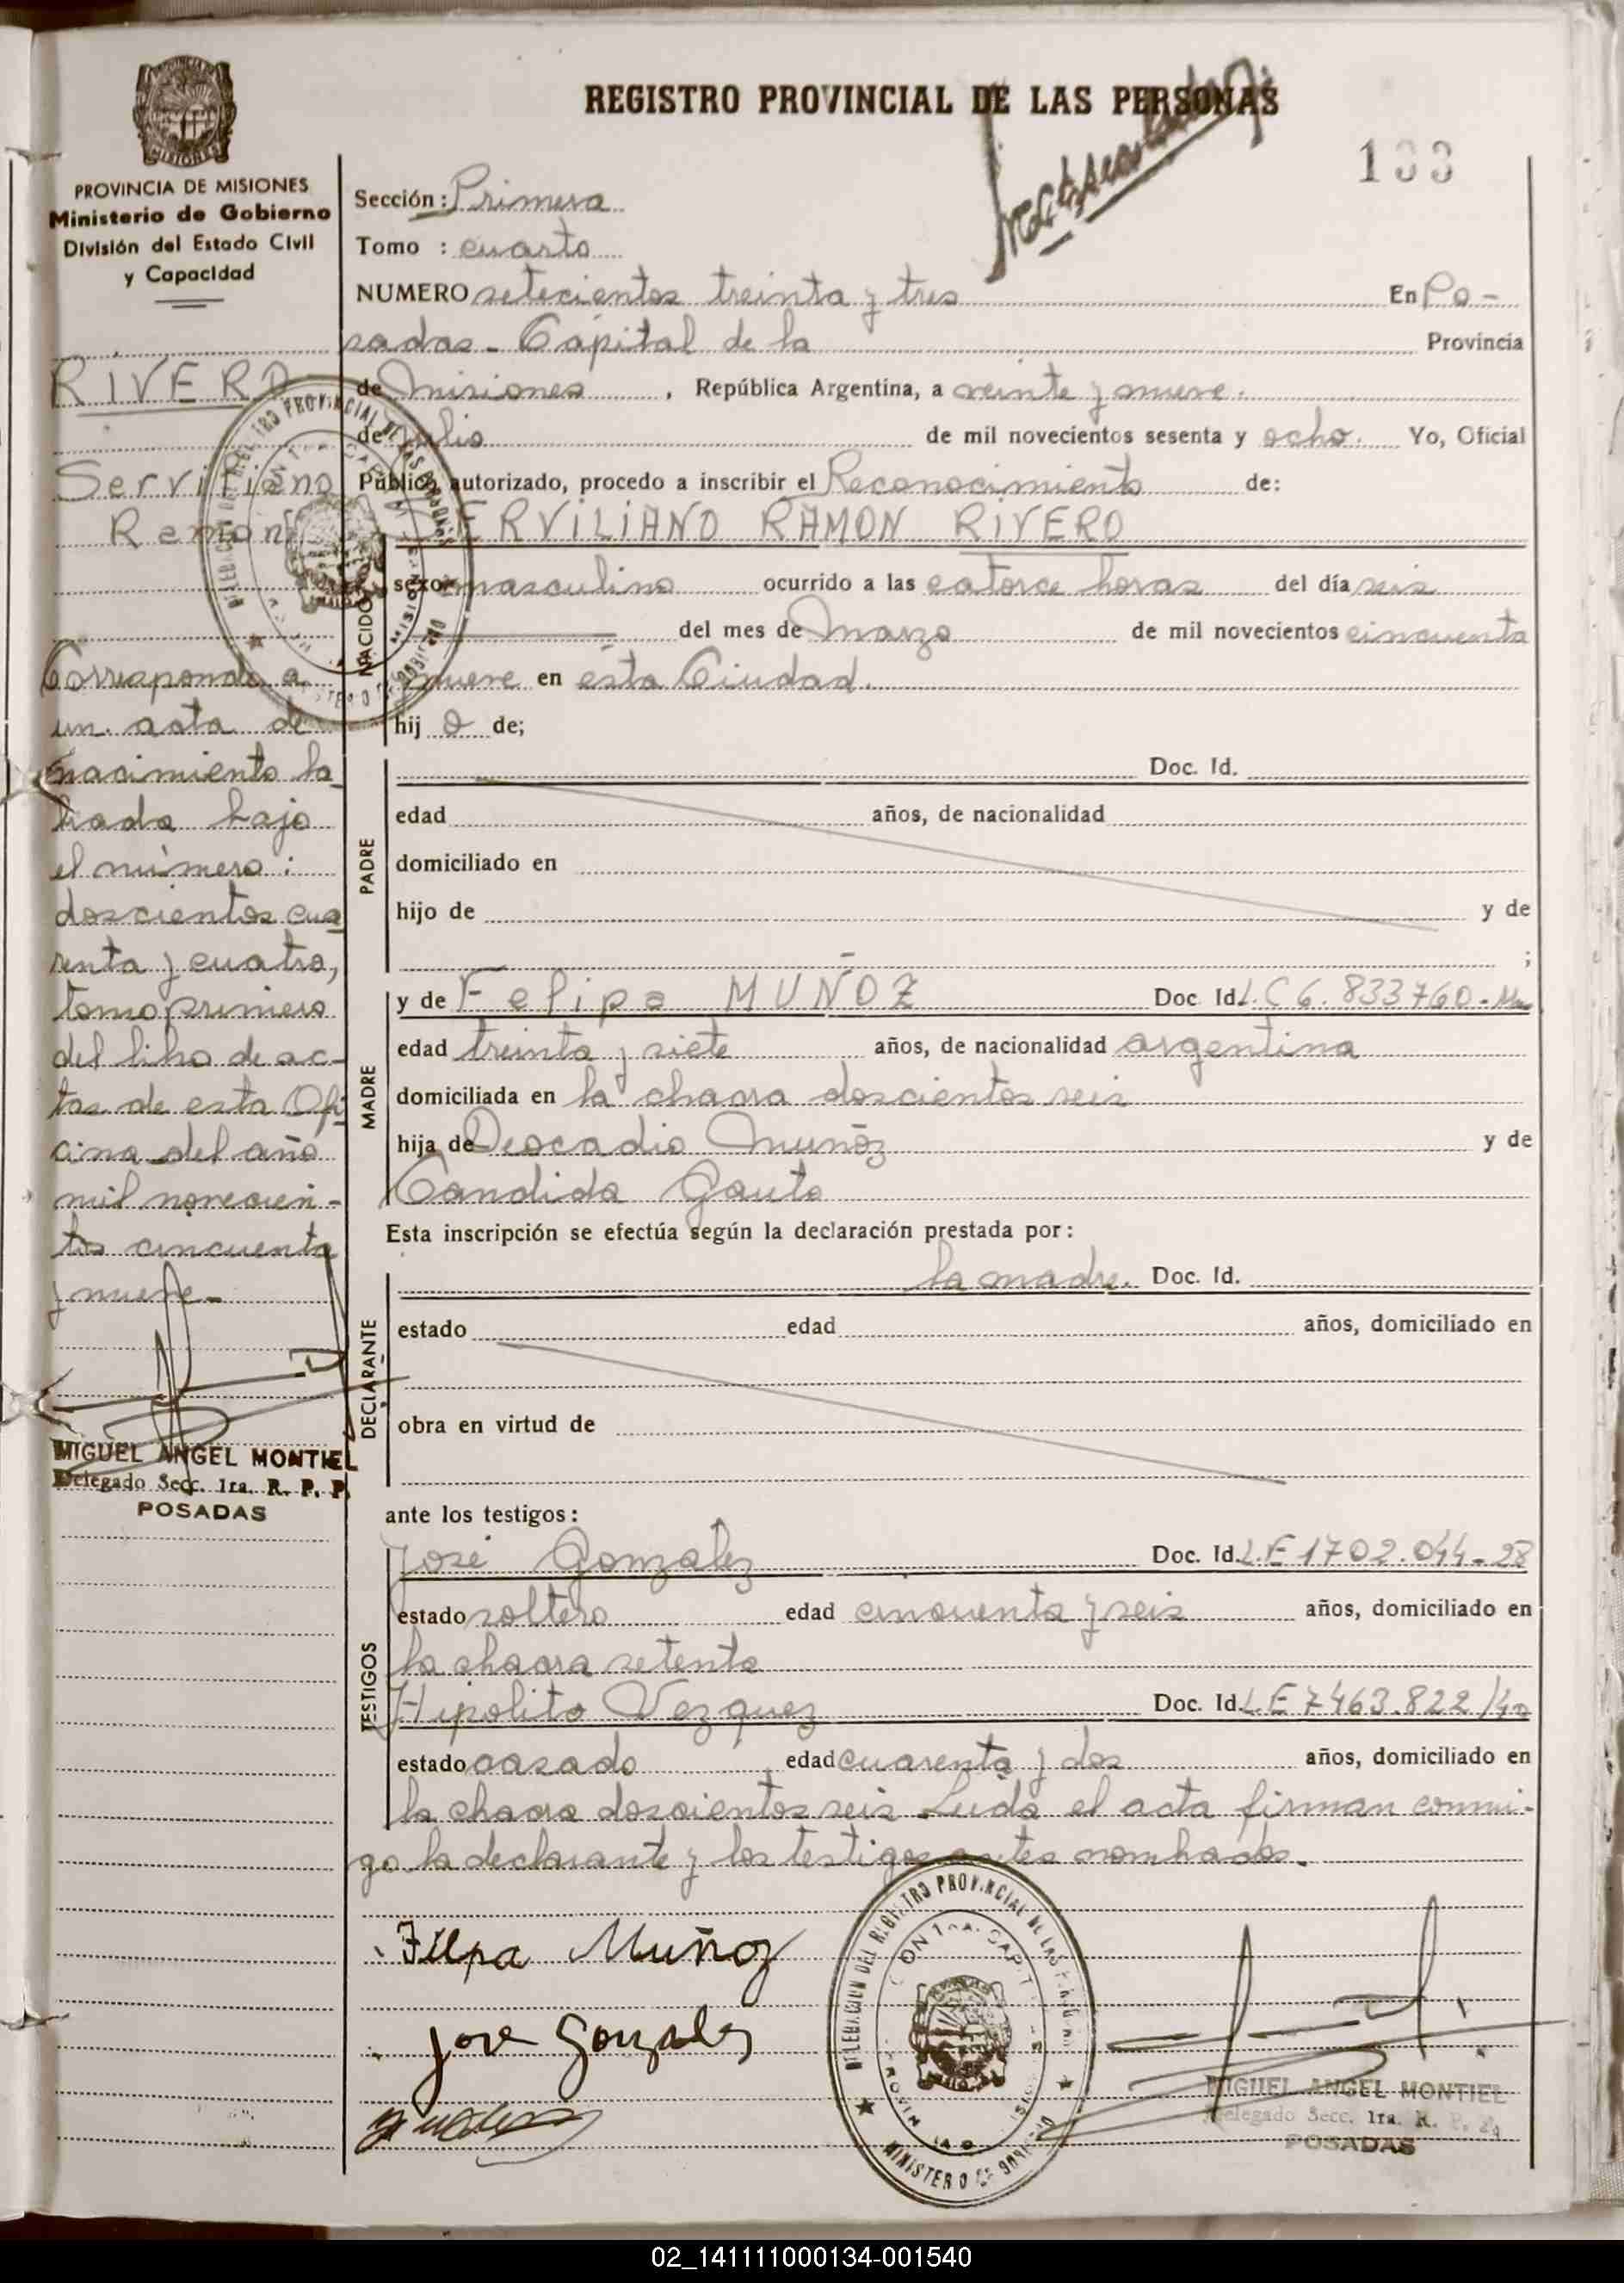 REGISTRO PROVINCIAL DE LAS PERSONAS
133
PROVINCIA DE MISIONES
Ministerio de Gobierno
División del Estado Civil
y Capacidad
RIVERO
Serviliano
Ramon
Corresponde a
un acta de
nacimiento la
brada bajo
el número:
doscientos cua
renta y cuatro,
tomo primero
del libro de ac-
tas de esta Ofi
cina del año
mil novecien-
tos cincuenta
y nueve-
MIGUEL ANGEL MONTIEL
Delegado Secc. 1ra. R. P. P.
POSADAS
Sección: Primera
Tomo : cuarto
NUMERO setecientos treinta y tres En Po-
sadas - Capital de la Provincia
de Misiones, República Argentina, a veinte y nueve.
de Julio de mil novecientos sesenta y ocho. Yo, Oficial
Público autorizado, procedo a inscribir el Reconocimiento de:
SERVILIANO RAMON RIVERO
NACIDO
sexo masculino ocurrido a las catorce horas del día seis
del mes de Marzo de mil novecientos cincuenta
y nueve en esta Ciudad.
hij o de;
PADRE
Doc. Id.
edad años, de nacionalidad
domiciliado en
hijo de y de
;
MADRE
y de Felipa MUÑOZ Doc. Id. L.C 6.833760-
edad treinta y siete años, de nacionalidad argentina
domiciliada en la chacra doscientos seis
hija de Deocadio Muñoz y de
Candida Gauto
Esta inscripción se efectúa según la declaración prestada por:
DECLARANTE
la madre. Doc. Id.
estado edad años, domiciliado en
obra en virtud de
ante los testigos:
TESTIGOS
José Gonzalez Doc. Id. L.E 1702.044-28
estado soltero edad cincuenta y seis años, domiciliado en
la chacra setenta
Hipolito Vezquez Doc. Id. L.E 7463.822/40
estado casado edad cuarenta y dos años, domiciliado en
la chacra doscientos seis Leida el acta firman conmi-
go la declarante y los testigos antes nombrados.
Filpa Muñoz
Jose Gonzalez
MIGUEL ANGEL MONTIEL
Delegado Secc. 1ra. R. P. P.
POSADAS
02_141111000134-001540